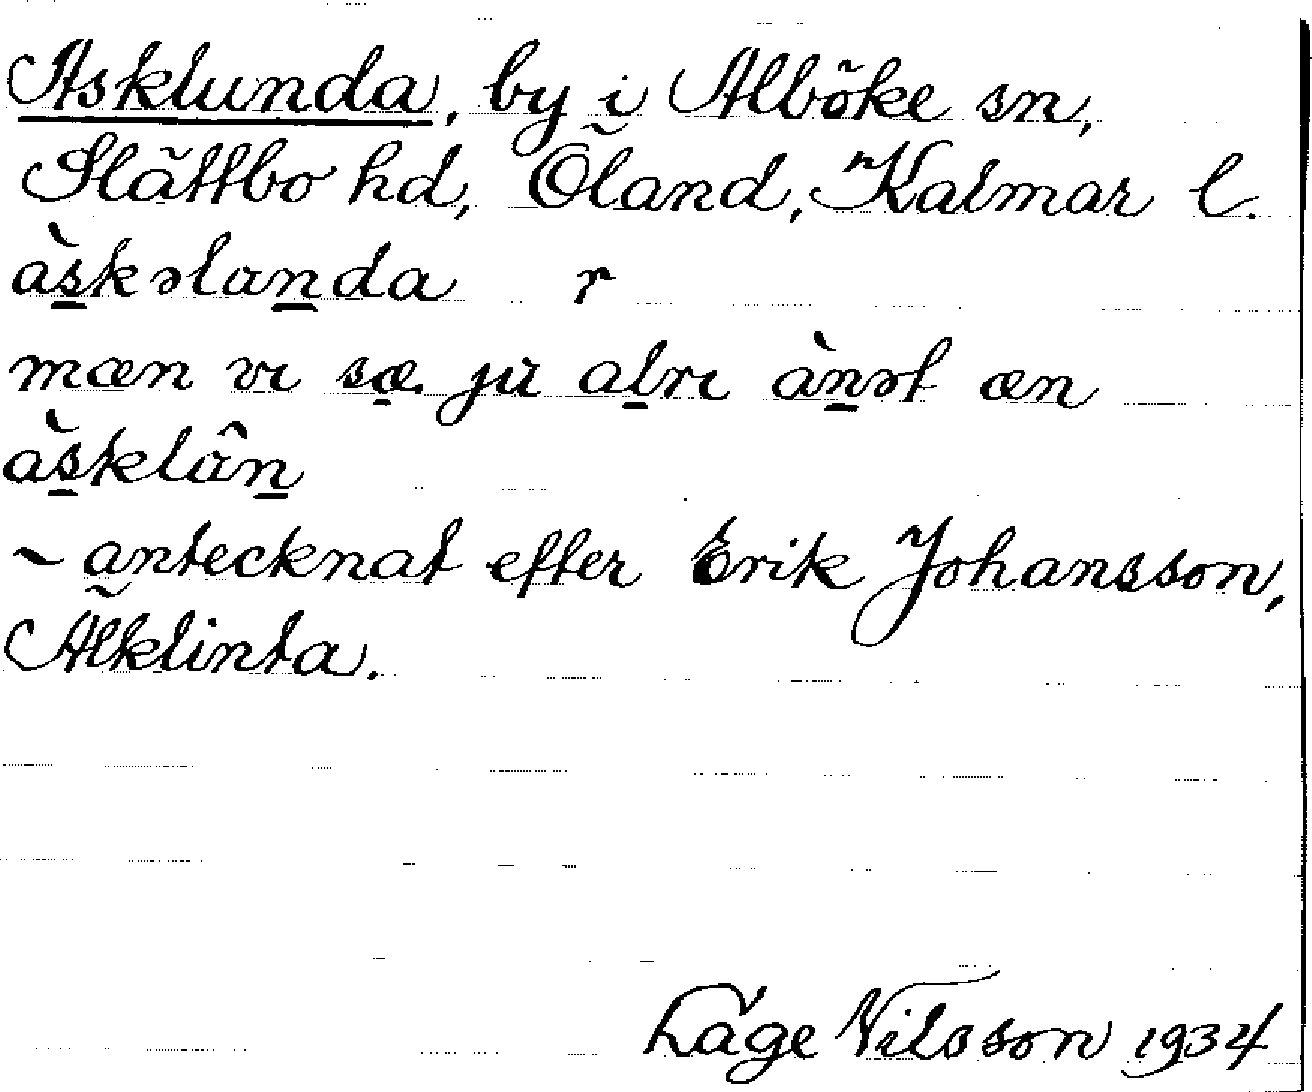 Asklunda, by i Alböke sn,
Slättbo hd, Öland, Kalmar l.
àskəlanda r
mæn vı sæ ju alrı ànət æn
àsklân
~ antecknat efter Erik Johansson,
Äleklinta.
Låge Nilsson 1934